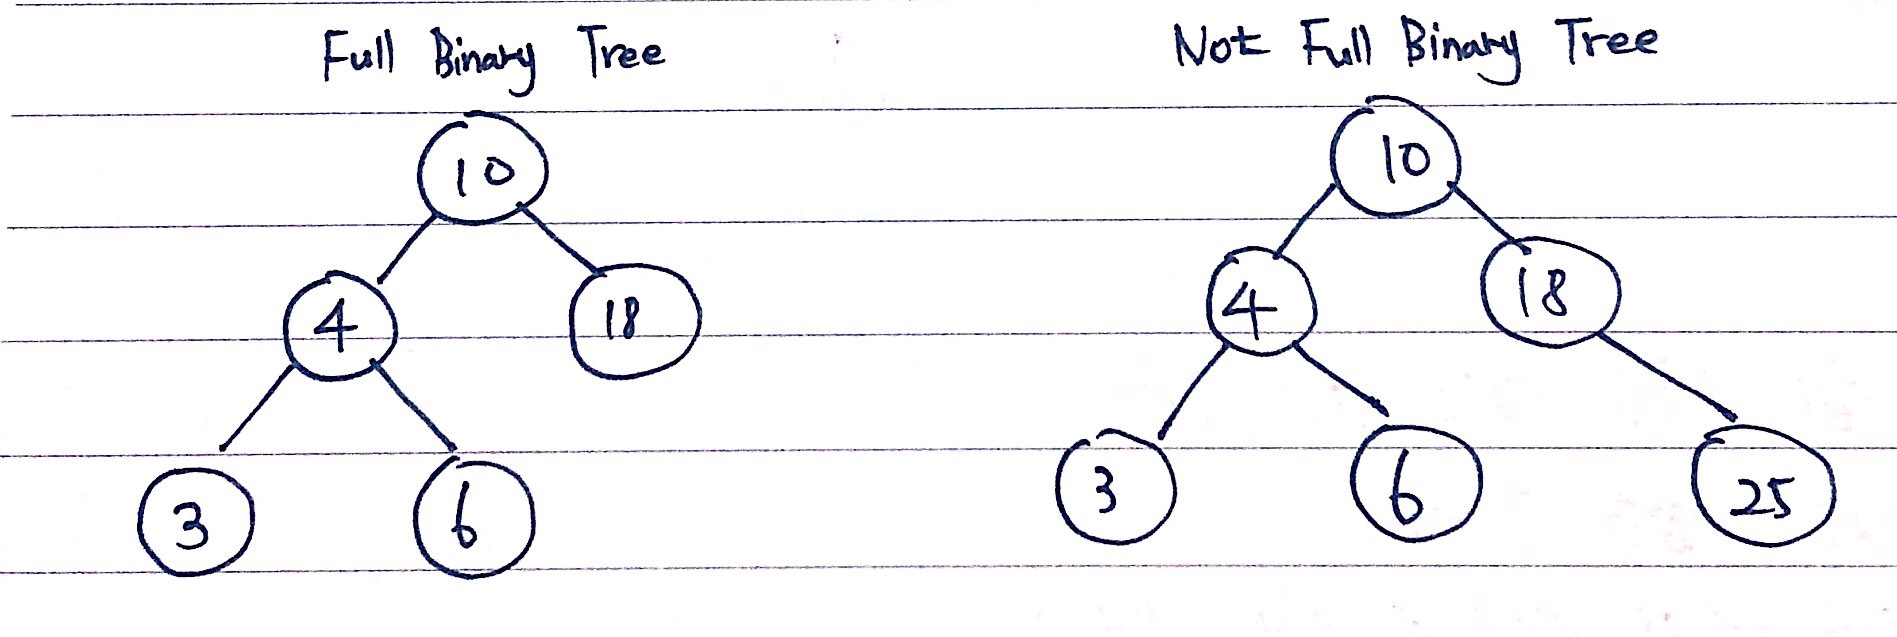 Full Binary Tree
10
4 18
3 6
Not Full Binary Tree
10
4 18
3 6 25